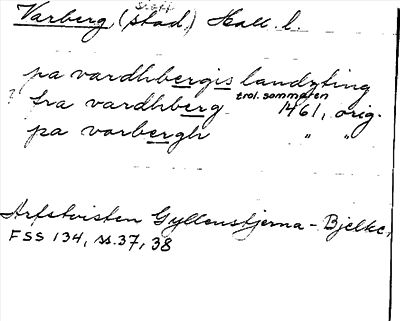 Slott
Varberg (stad) Hall. l.
pa vardhbergis landzting
? fra vardhberg trol. sommaren 1461, orig.
pa varbergh " "
Arfstvisten Gyllenstjerna - Bjelke,
FSS 134, ss. 37, 38